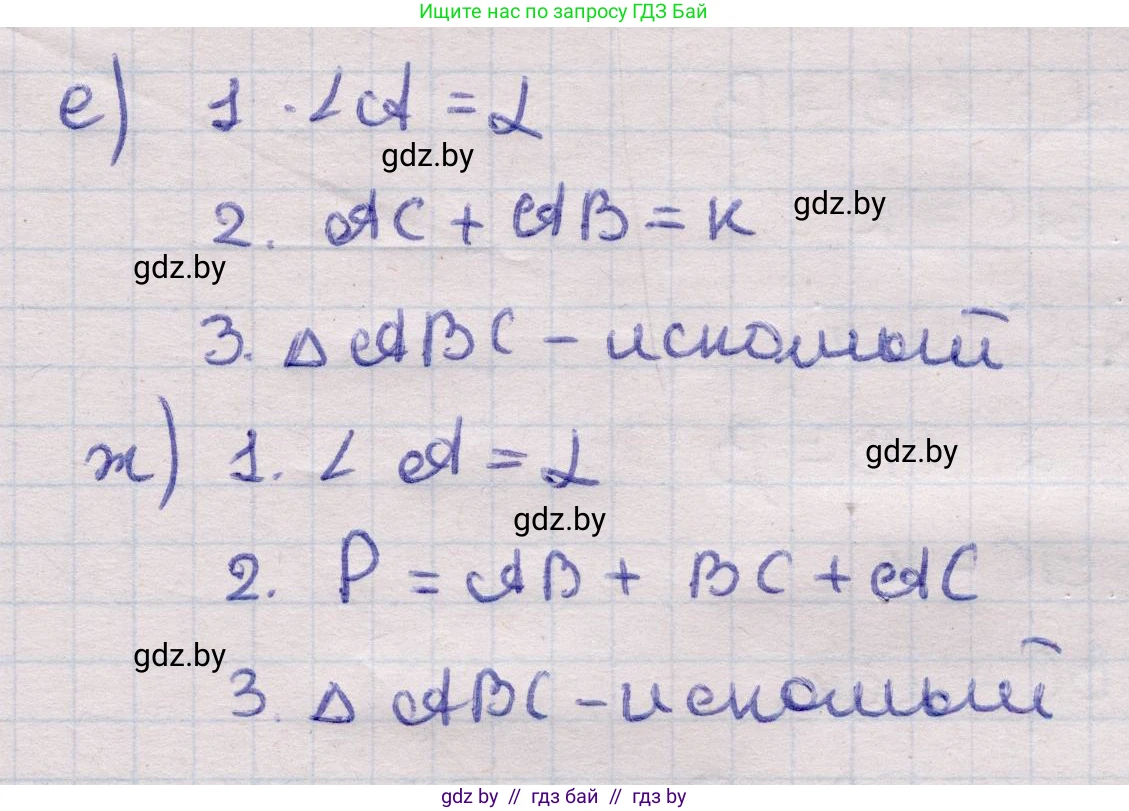 Ищите нас по запросу ГДЗ Бай
е) 1. ∠A = α
gdz.by
2. AC + AB = к
gdz.by
gdz.by
3. △ABC - искомый
ж) 1. ∠ A = α
gdz.by
gdz.by
2. P = AB + BC + AC
gdz.by
3. △ ABC - искомый
gdz by // гдз бай // гдз by